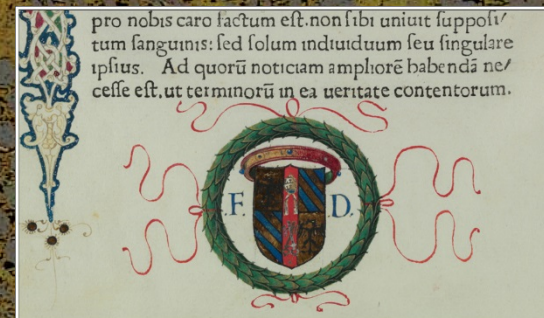 pro nobis caro factum est. non sibi uniuit supposi/
tum sanguinis: sed solum indiuiduum seu singulare
ipsius. Ad quorū noticiam ampliorē habendā ne/
cesse est. ut terminorū in ea ueritate contentorum.
.F. D.